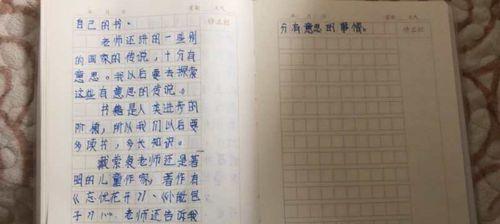 自己的书。
老师还讲的一些别
的国家的传说，十分有
意思。我以后要去探索
这些有意思的传说。
书籍是人类进步的
阶梯，所以我们以后要
多读书，多长知识。
戴萦袅老师还是著
明的儿童作家，著作有
《忘忧花开了》、《小能包
子》……老师还告诉我
分有意思的事情。